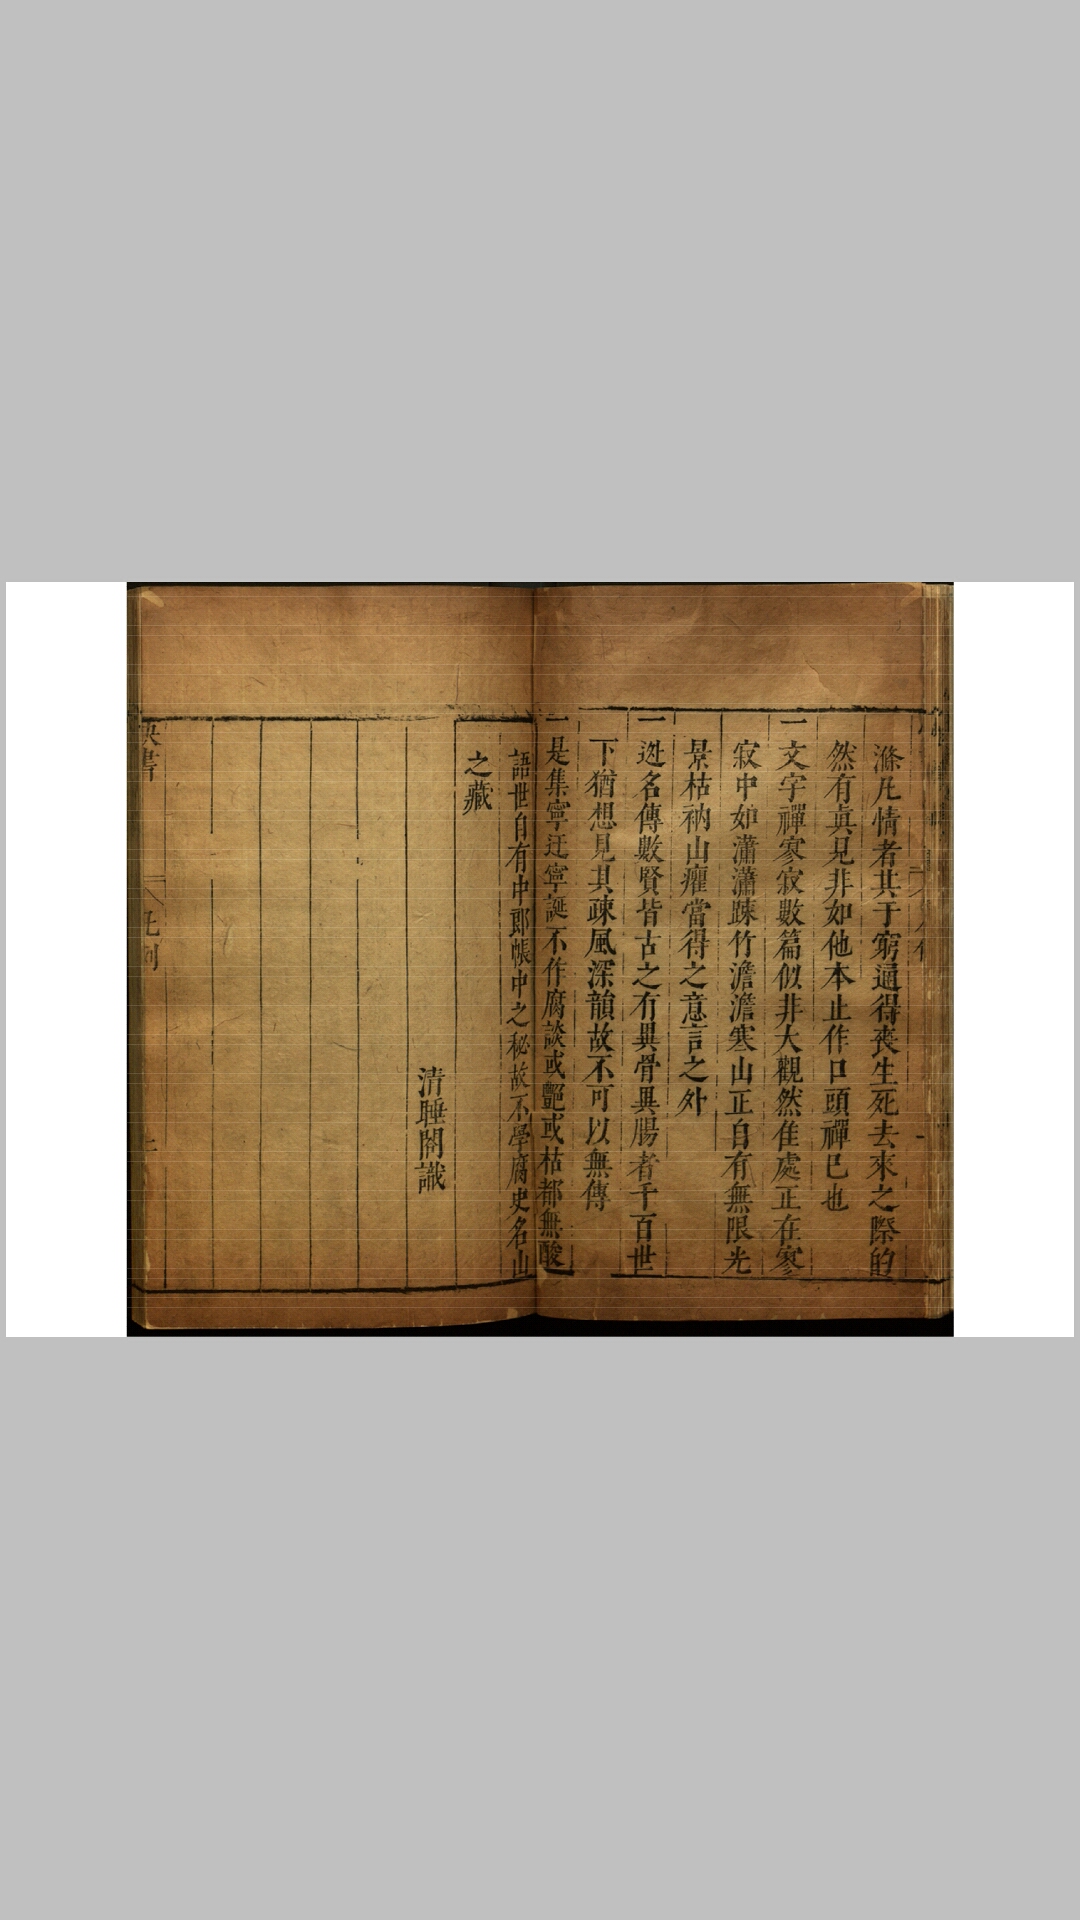 滌凡情者其于窮通得喪生死去來之際的
然有眞見非如他本止作口頭禪已也
一文字禪寥寂數篇似非大觀然佳處正在寥
寂中如瀟瀟踈竹澹澹寒山正自有無限光
景枯衲山癯當得之意言之外
一迯名傳數賢皆古之有異骨異腸者千百世
下猶想見其疎風深韻故不可以無傳
一是集寧迂寧誕不作腐談或艷或枯都無酸
語世自有中郎帳中之秘故不學腐史名山
之藏
清睡閣識
快書
凡例